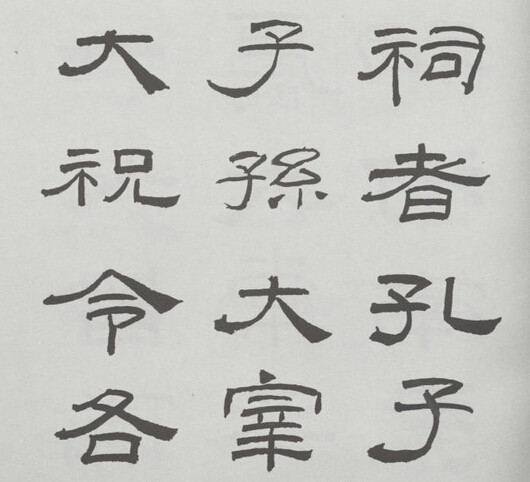 祠者孔子
子孫大宰
大祝令各